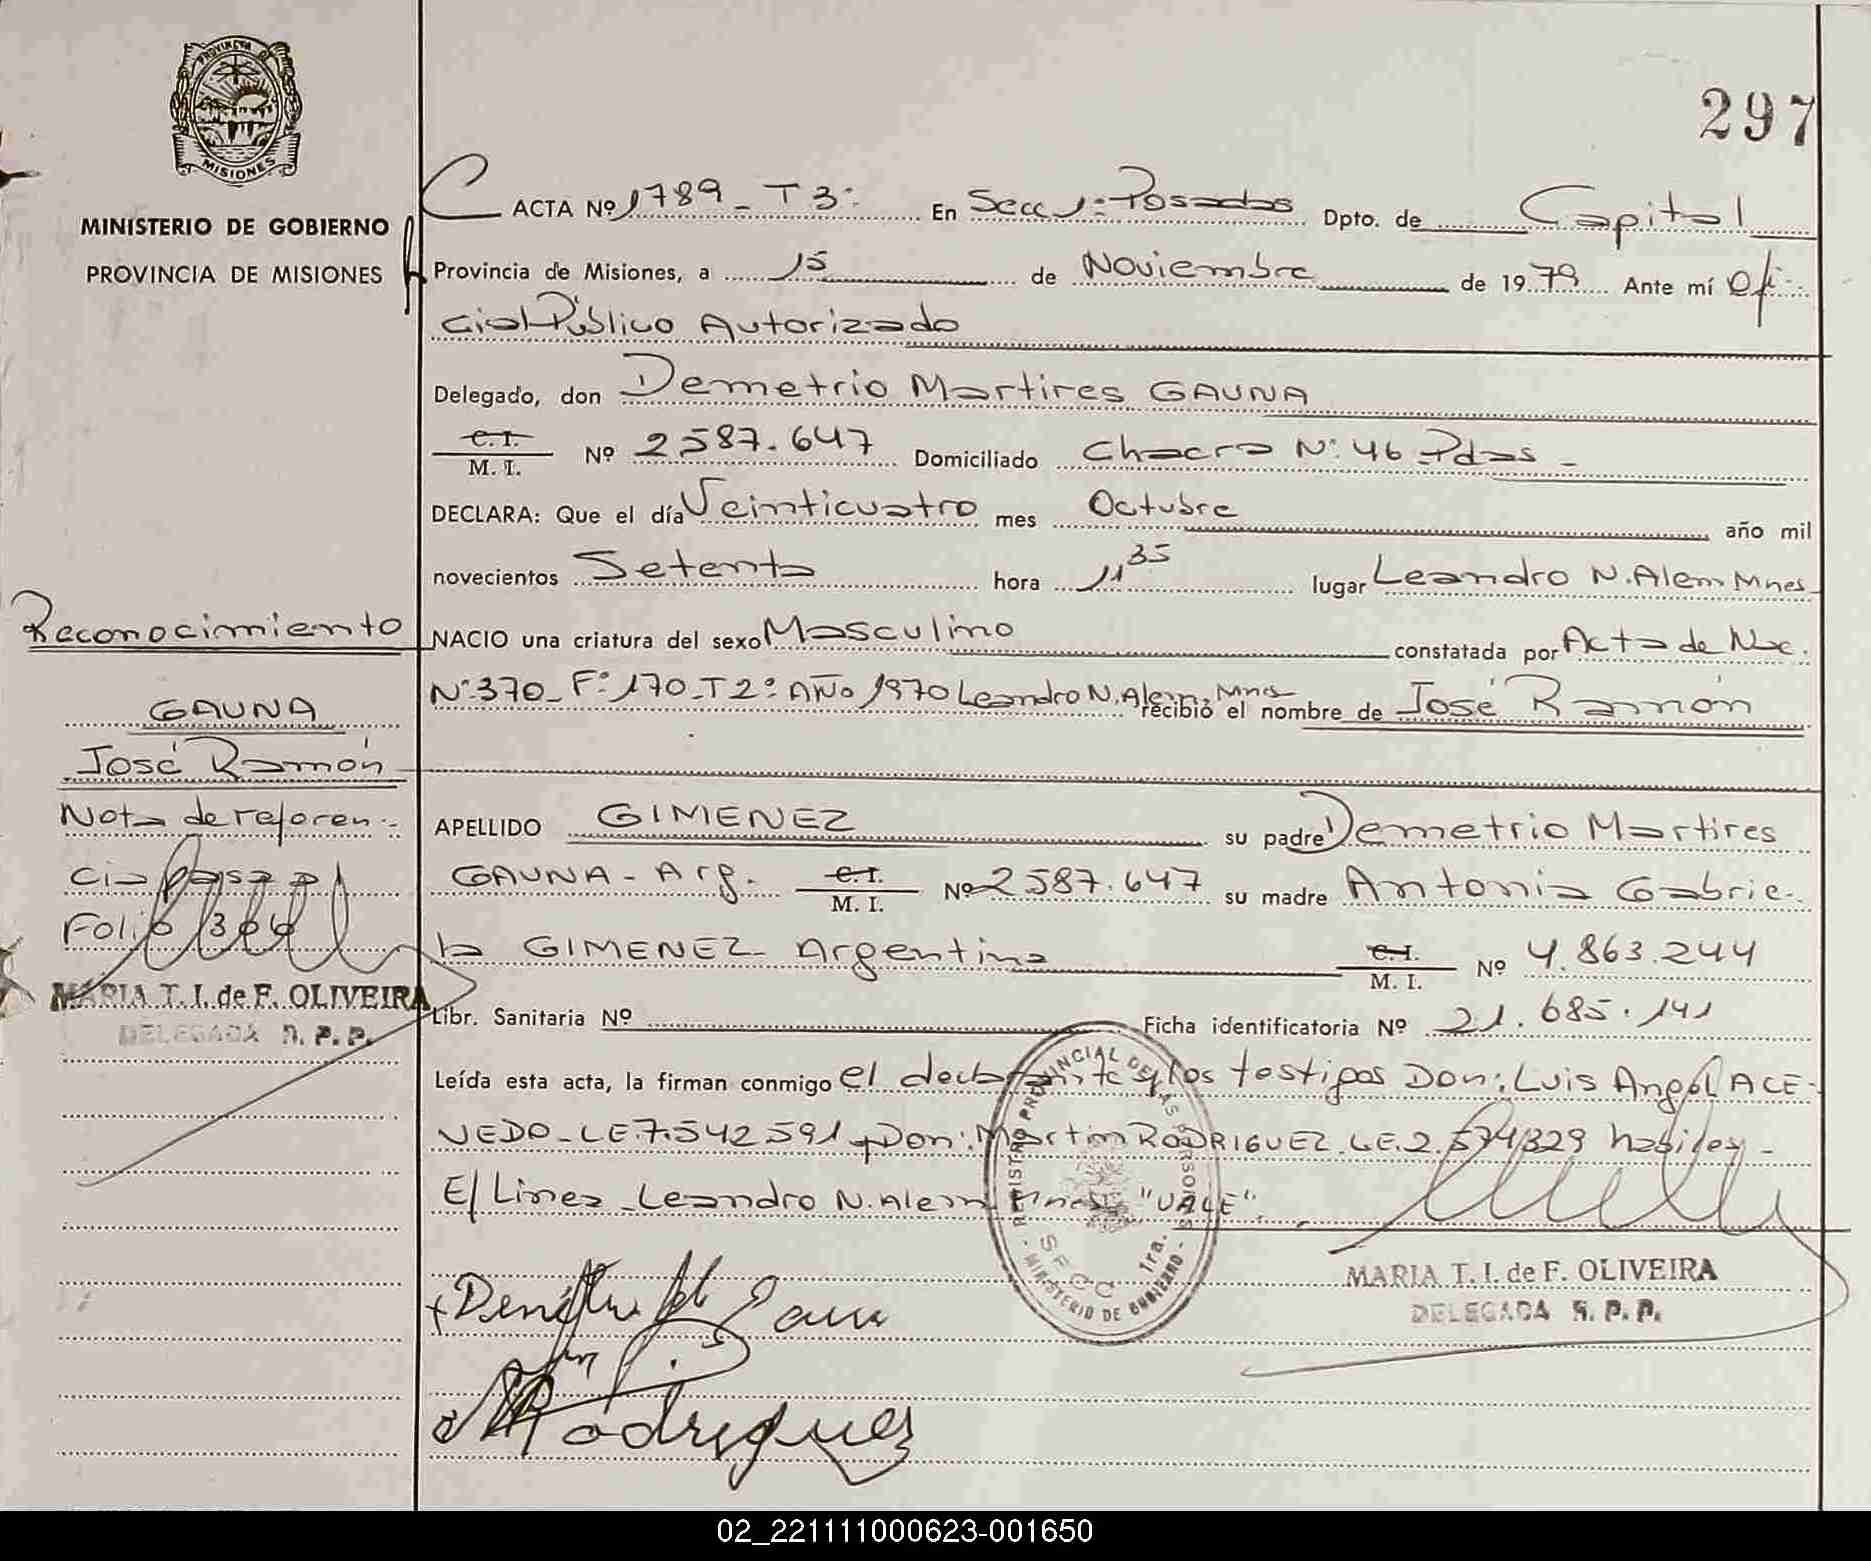 PROVINCIA DE
MISIONES
MINISTERIO DE GOBIERNO
PROVINCIA DE MISIONES
297
ACTA Nº 1789_ T 3:
En Secc 1: Posadas
Dpto. de Capital
Provincia de Misiones, a 15 de Noviembre de 1979 Ante mí Ofi-
cial Público Autorizado
Delegado, don Demetrio Martires GAUNA
C.I.
M. I. Nº 2587.647 Domiciliado Chacra Nº 46 Pdas -
DECLARA: Que el día Veinticuatro mes Octubre año mil
novecientos Setenta hora 11 35 lugar Leandro N. Alem Mnes
NACIO una criatura del sexo Masculino constatada por Acta de Nac.
Nº 370_ Fº 170_T 2º AÑO 1970 Leandro N. Alem, Mnes recibió el nombre de José Ramón
APELLIDO GIMENEZ su padre Demetrio Martires
GAUNA - Arg. C.I. M. I. Nº 2587.647 su madre Antonia Gabrie-
la GIMENEZ Argentina C.I. M. I. Nº 4.863.244
Libr. Sanitaria Nº Ficha identificatoria Nº 21.685.141
Leída esta acta, la firman conmigo el declarante y los testigos Don: Luis Angel ACE-
VEDO_ LE.7.542 591 y Don: Martin RODRIGUEZ LE.2.574329 habiles -
E/Linea_Leandro N. Alem Mnes "VALE".
MARIA T. I. de F. OLIVEIRA
DELEGADA R. P. P.
REGISTRO PROVINCIAL DE LAS PERSONAS
MINISTERIO DE GOBIERNO
1ra.
Rodriguez
Reconocimiento
GAUNA
José Ramón
Nota de referen-
cia pasa al
Folio 300
MARIA T. I. de F. OLIVEIRA
DELEGADA R. P. P.
02_221111000623-001650